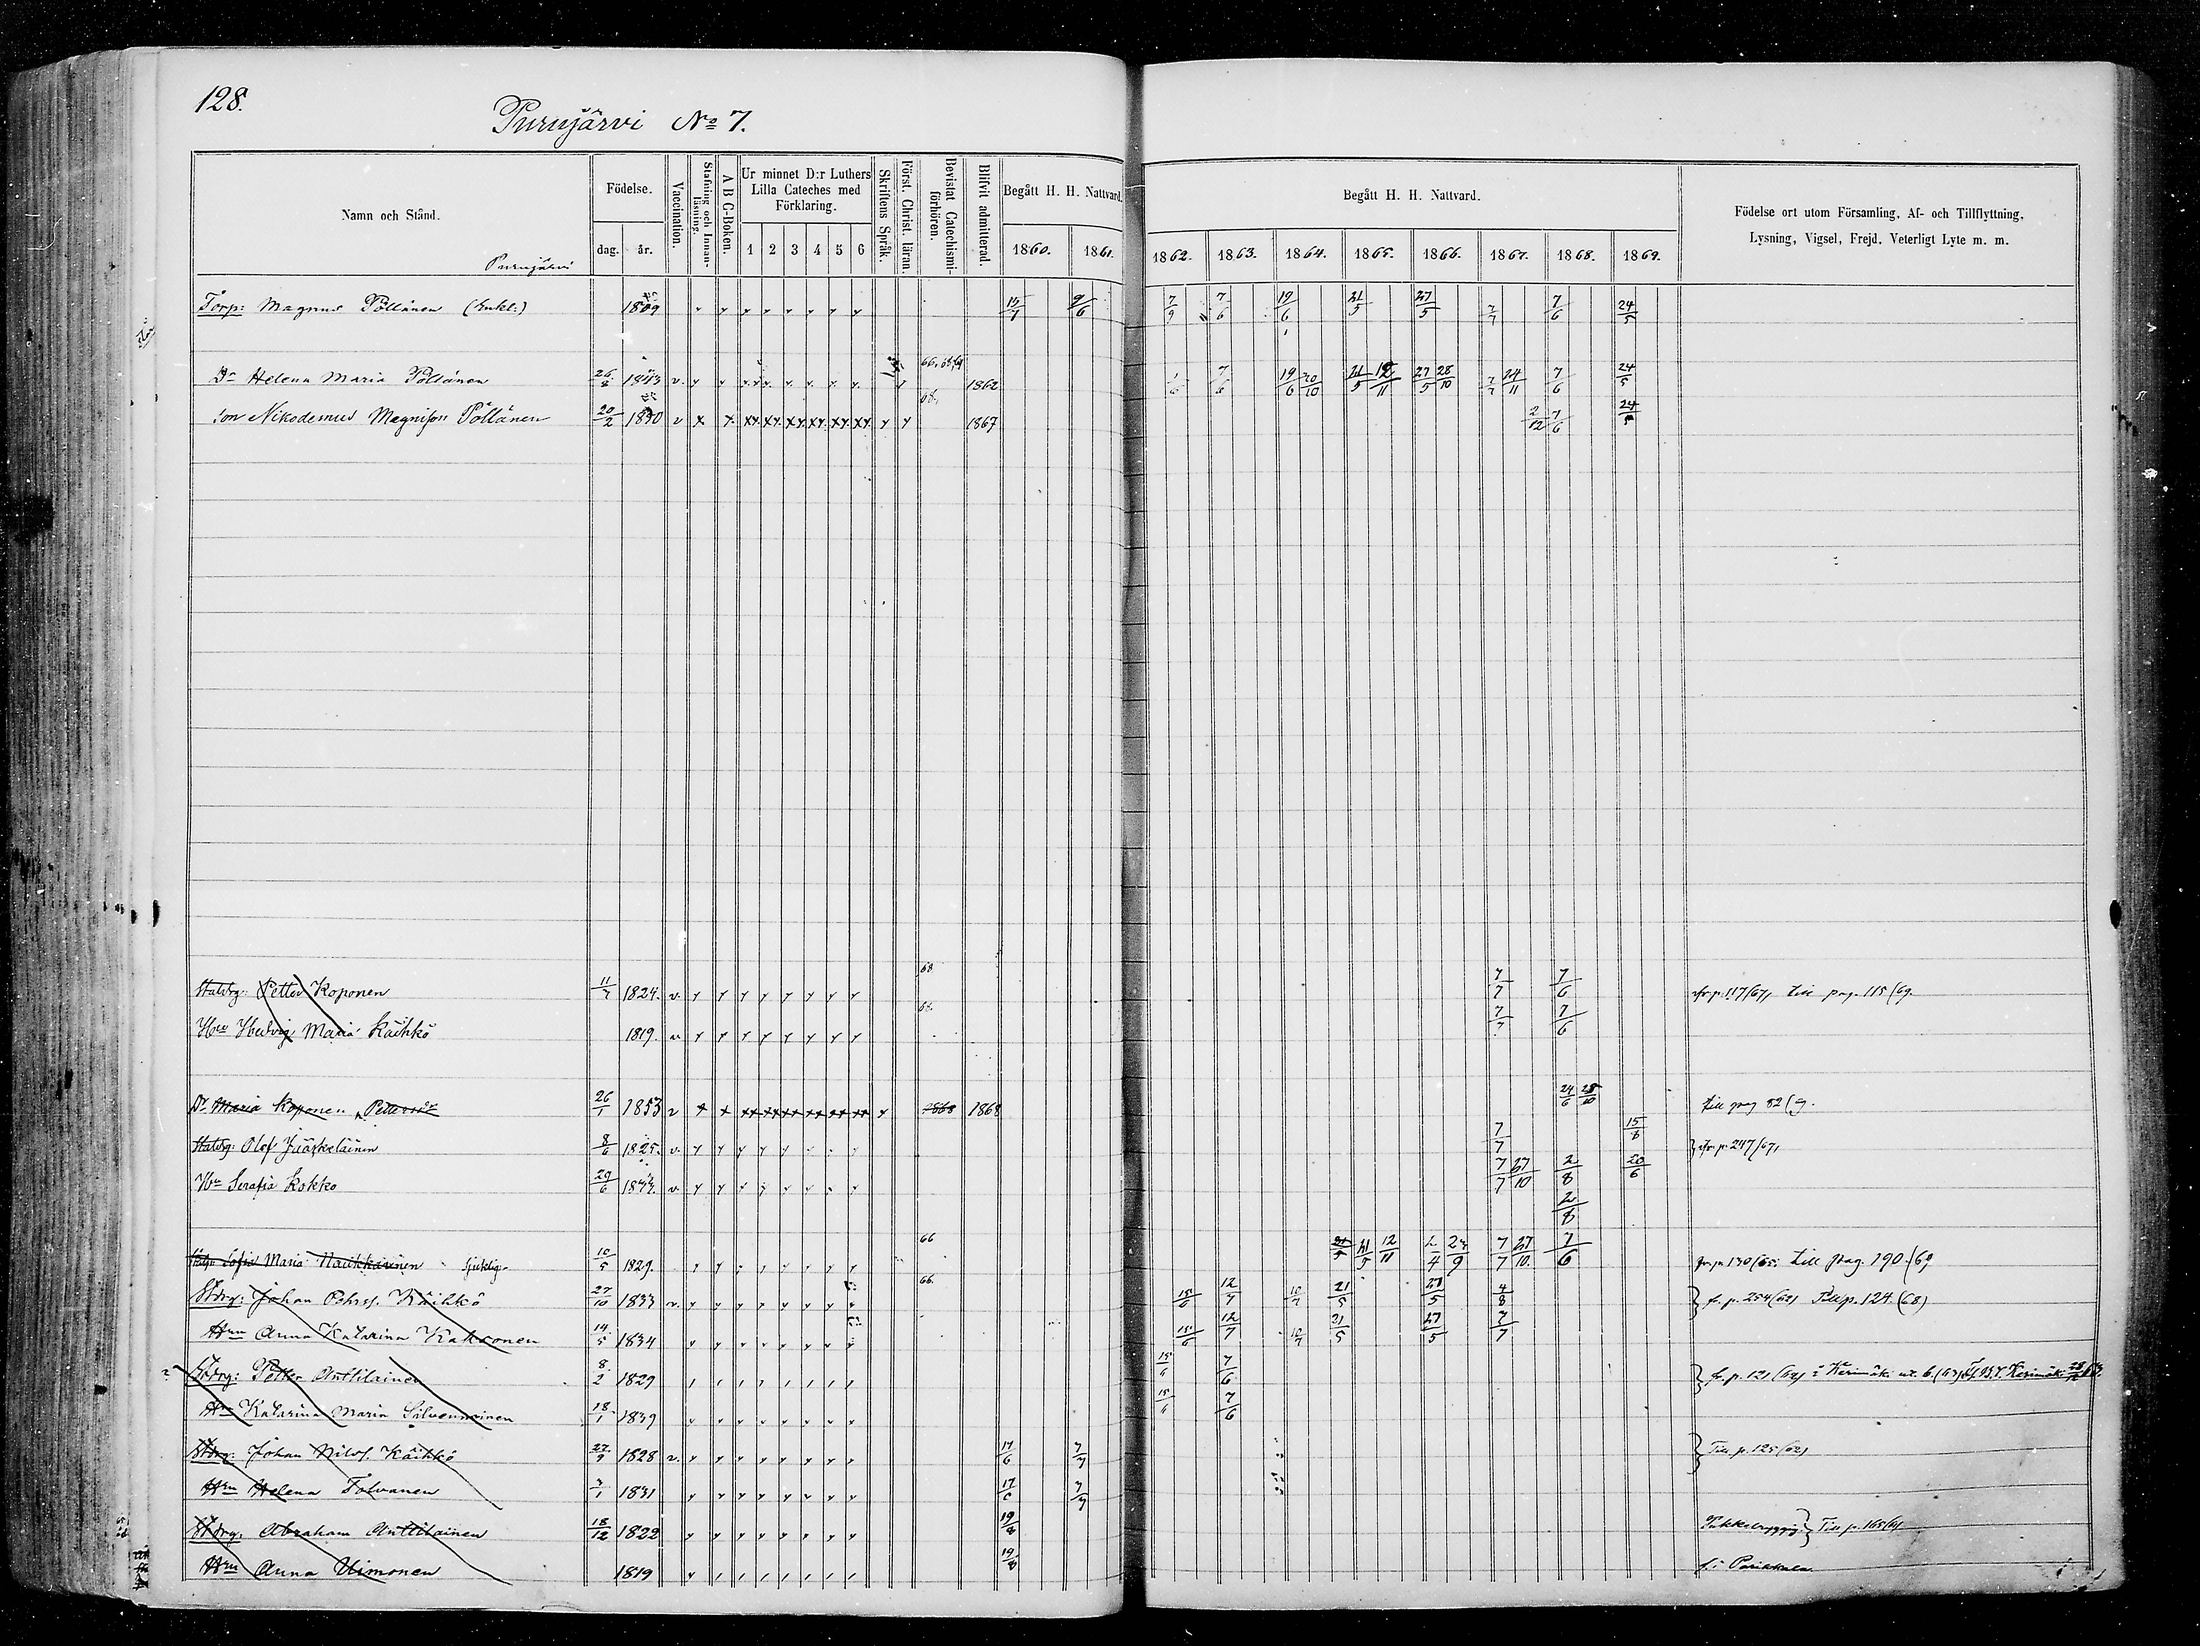 128.
Purujärvi No 7.
Namn och Stånd.
Födelse.
dag. år.
Vaccination.
Stafning och Innanläsning.
A B C-Boken.
Ur minnet D:r Luthers Lilla Cateches med Förklaring.
1 2 3 4 5 6
Skriftens Språk.
Först. Christ. läran.
Bevistat Catechismiförhören.
Blifvit admitterad.
Begått H. H. Nattvard.
1860. 1861.
Begått H. H. Nattvard.
1862. 1863. 1864. 1865. 1866. 1867. 1868. 1869.
Födelse ort utom Församling, Af- och Tillflyttning,
Lysning, Vigsel, Frejd, Veterligt Lyte m. m.
Purujärvi
Torp: Magnus Pöllänen (Enkl:) 1809 9/6 7/9 7/6 19/6 21/5 27/5 7/7 7/6 24/5
Dr Helena Maria Pöllänen 26/8 1843 v. 1862 1/6 7/6 19/6 20/10 21/5 12/11 27/5 28/10 7/7 24/11 7/6 24/5
Son Nikodemus Magnisson Pöllänen 20/2 1850 v 1867 2/12 7/6 24/5
Statdrg: Petter Koponen 11/7 1824. v. 68 7/7 7/6 fr. p. 117/67, till pag. 115/69.
Hu Hedvig Maria Käihkö 1819. v. 68. 7/7 7/6
Dr Maria Koponen Pettersdr 26/1 1853 v 1868 1868 24/6 25/10 till pag 82/69.
Statdrg: Olof Jääskeläinen 8/6 1825. v. 7/7 15/8 fr. p. 247/67,
Hu Serafia Kokko 29/6 v. 7/7 27/10 2/8 20/6
2/8
Sofia Maria Naukkarinen sjuklig 10/5 1829. 66 21/5 12/11 2/4 7/7 27/10. 7/6 fr. p. 130/65: till pag. 190./69
Stdrg: Johan Pehrss. Käihkö 27/10 1833 v. 66. 15/6 12/7 10/7 21/5 27/5 4/8 f. p. 254/62) Till p. 124. (68)
Hru Anna Katarina Kakronen 14/5 1834 15/6 12/7 10/7 21/5 27/5 7/7
Stdrg: Petter Anttilainen 8/2 1829 15/6 7/6 f. p. 121 (62) i Kerimäki
Hru Katarina Maria Silvennoinen 18/1 1839 15/6 7/6
Stdrg: Johan Nilss. Käihkö 27/9 1828 v. 17/6 7/7 Till p. 125 (62)
Hru Helena Tolvanen 7/1 1831 17/6 7/7
Stdrg. Abraham Anttilainen 18/12 1822 19/8 Till p. 165/61
Hru Anna Uimonen 1819 19/8 f. i Parikkala.